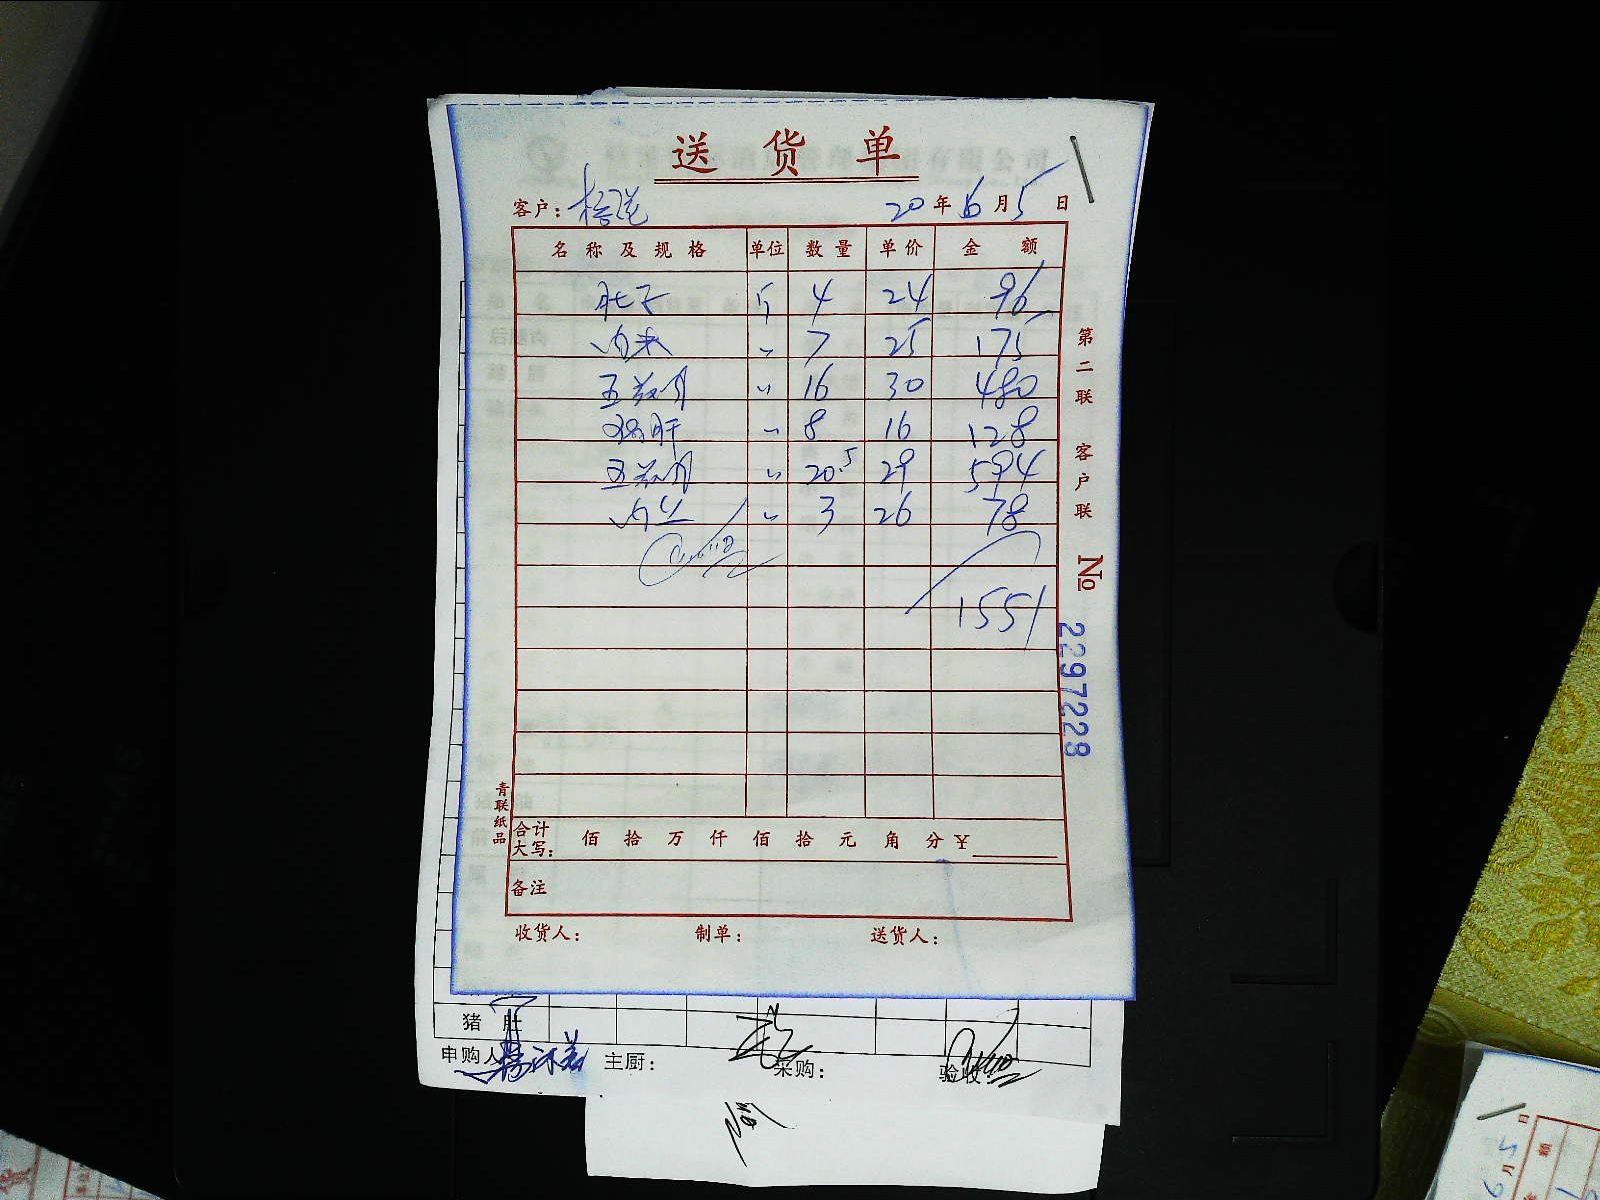 送货单
客户： 20年6月5日
名称及规格 单位 数量 单价 金额
肚子 斤 4 24 96
肉末 〃 7 25 175
五花肉 〃 16 30 480
猪肝 〃 8 16 128
五花肉 〃 20.5 29 594
肉丝 〃 3 26 78
1551
第二联 客户联
No 2297228
青联纸品
合计大写： 佰 拾 万 仟 佰 拾 元 角 分 ¥
备注
收货人： 制单： 送货人：
猪肚
申购人 主厨： 采购： 验收